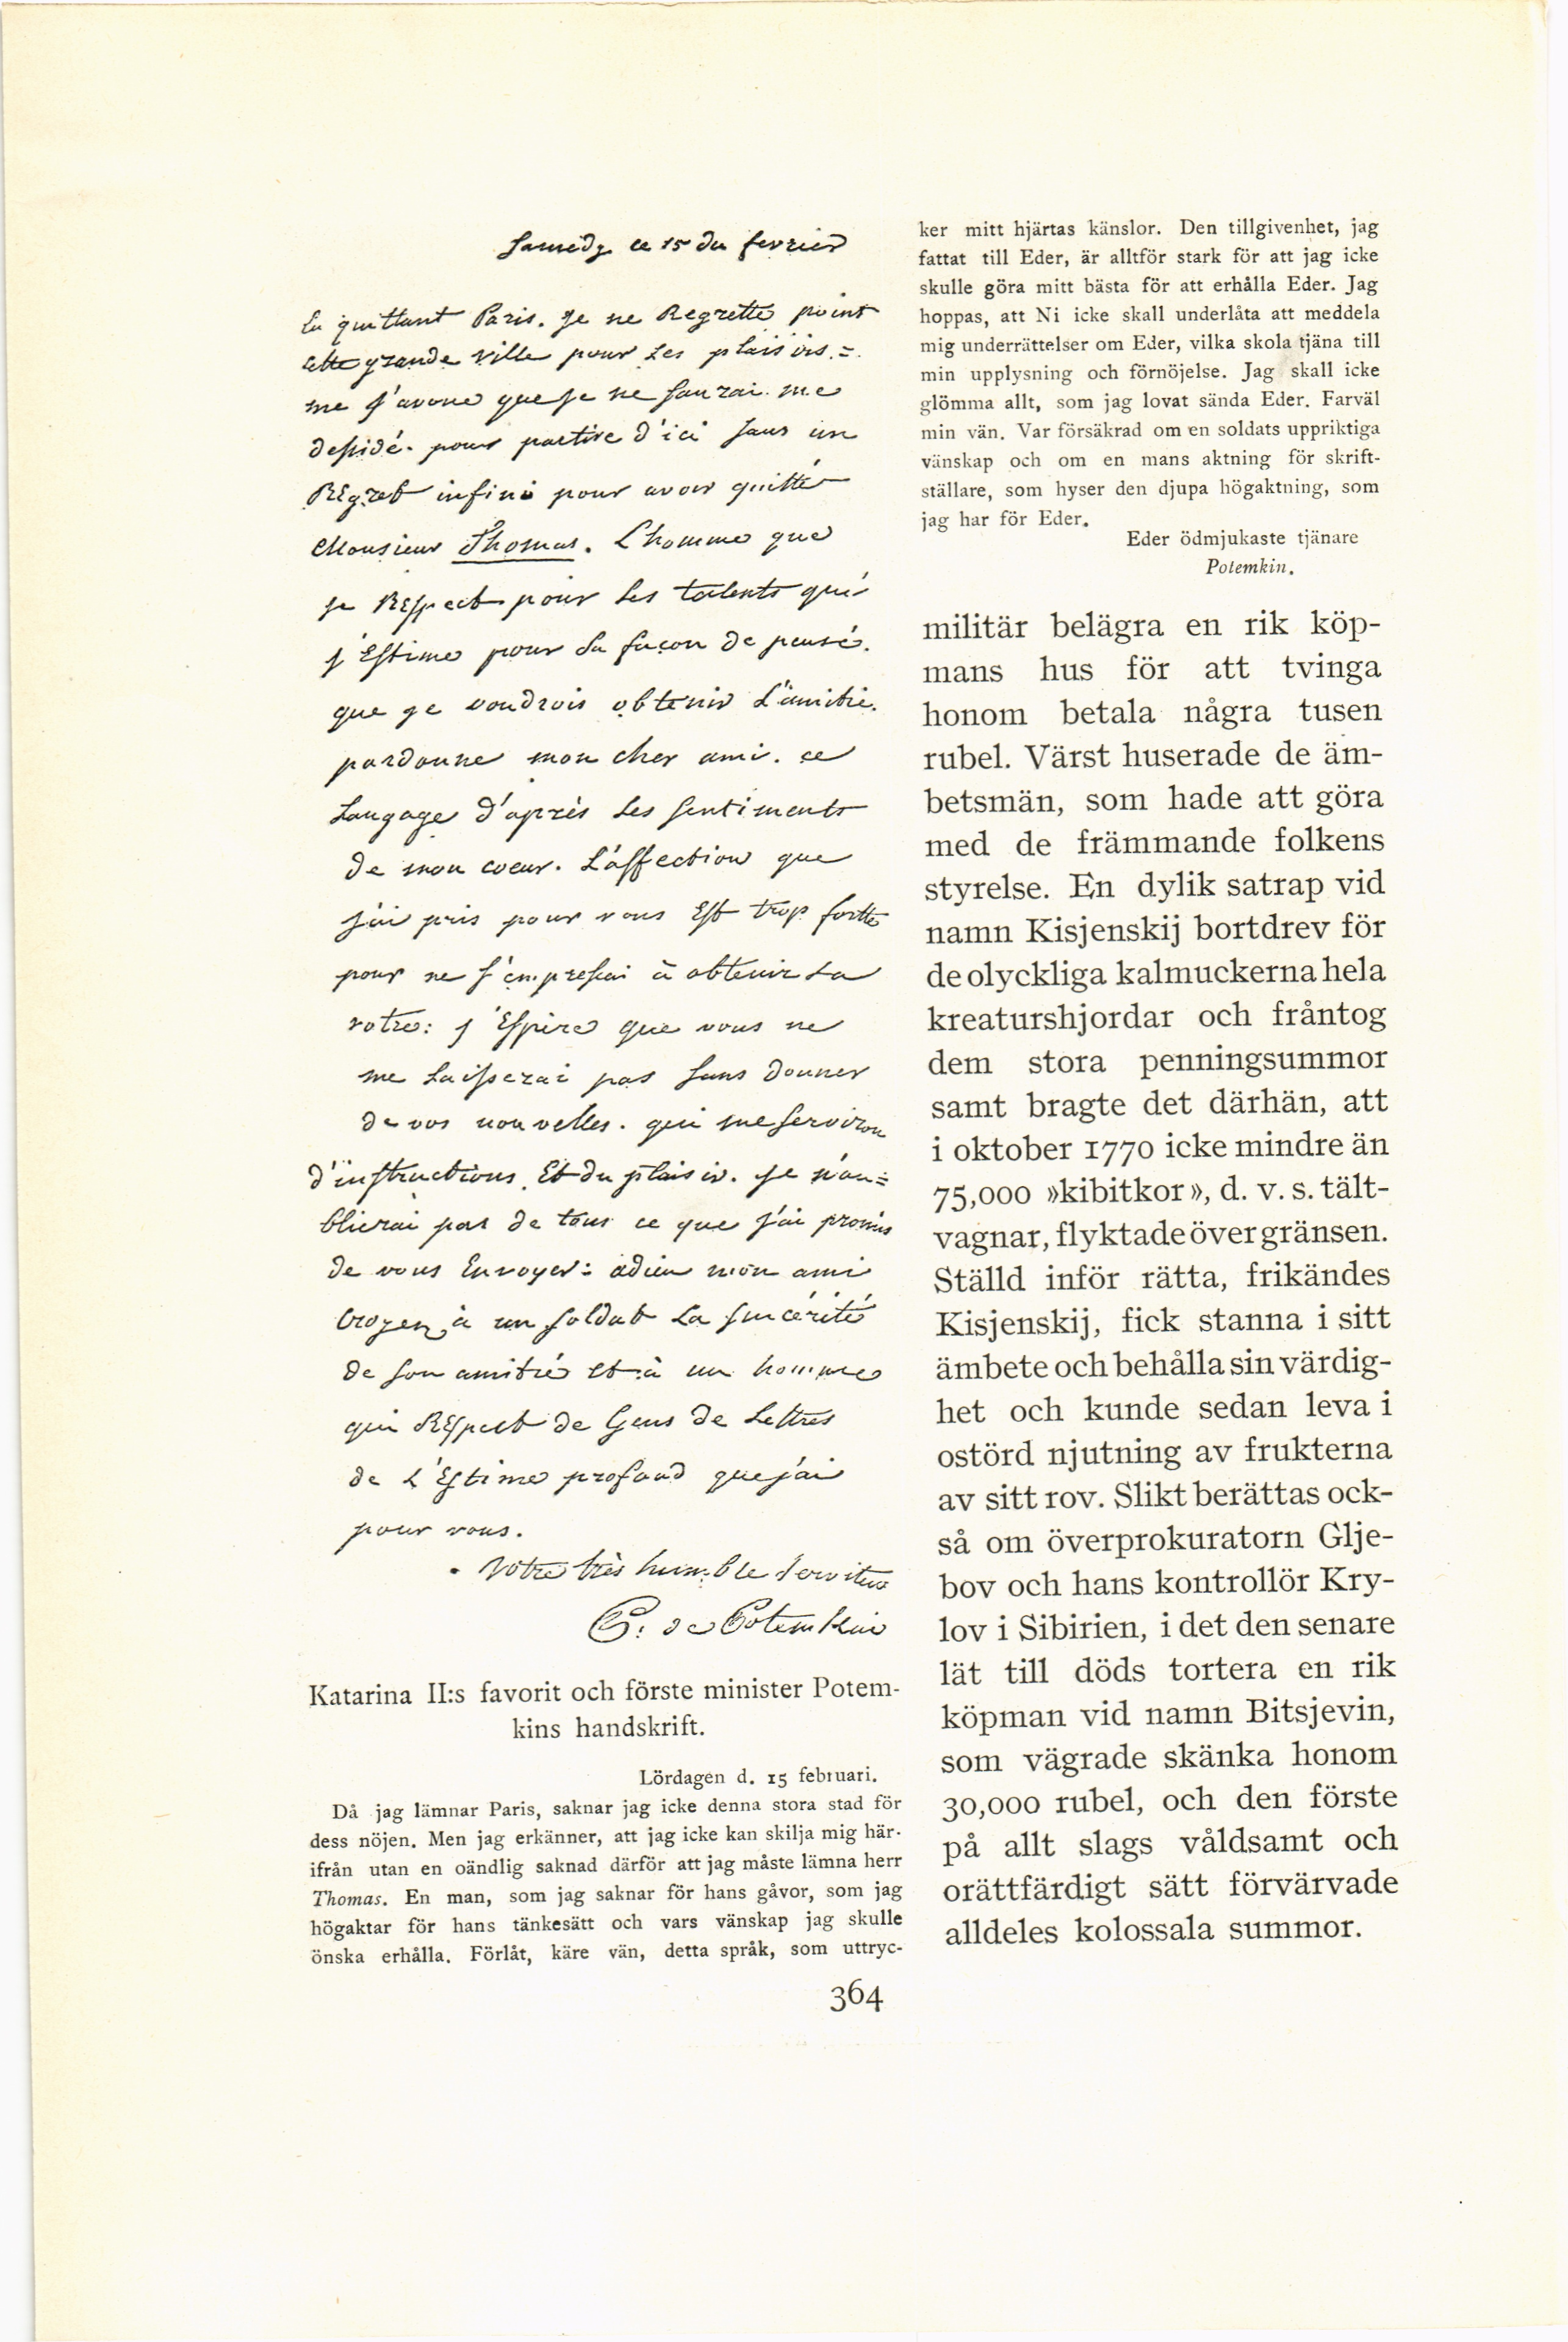 Samedy ce 15 du fevrier
En quittant Paris. Je ne Regrette point
cette grande ville pour les plaisirs. =
me j'avoue que je ne saurai me
desidé. pour partire d'ici sans un
REgret infini pour avoir quitté
Monsieur Thomas. L'homme que
je REspect pour les talents qui
j'Estime pour sa façon de pensé.
que je voudrois obtenir L'amitié.
pardonne mon cher ami. ce
Langage d'après les sentiments
de mon coeur. L'affection que
j'ai pris pour vous Est trop fortte
pour ne s'empressai à obtenir La
votre: j'Espere que vous ne
me Laisserai pas sans donner
de vos nouvelles. qui me serviron
d'instructions. Et du plaisir. je n'ou=
blierai pas de tous ce que j'ai promis
de vous Envoyer: adieu mon ami
Croyen à un soldat La sincérité
de son amitié et à un homme
qui REspect de Gens de Lettres
de L'Estime profond que j'ai
pour vous.
Votre très humble serviteur
G: de Potemkin
Katarina II:s favorit och förste minister Potem-
kins handskrift.
Lördagen d. 15 februari.
Då jag lämnar Paris, saknar jag icke denna stora stad för
dess nöjen. Men jag erkänner, att jag icke kan skilja mig här-
ifrån utan en oändlig saknad därför att jag måste lämna herr
Thomas. En man, som jag saknar för hans gåvor, som jag
högaktar för hans tänkesätt och vars vänskap jag skulle
önska erhålla. Förlåt, käre vän, detta språk, som uttryc-
ker mitt hjärtas känslor. Den tillgivenhet, jag
fattat till Eder, är alltför stark för att jag icke
skulle göra mitt bästa för att erhålla Eder. Jag
hoppas, att Ni icke skall underlåta att meddela
mig underrättelser om Eder, vilka skola tjäna till
min upplysning och förnöjelse. Jag skall icke
glömma allt, som jag lovat sända Eder. Farväl
min vän. Var försäkrad om en soldats uppriktiga
vänskap och om en mans aktning för skrift-
ställare, som hyser den djupa högaktning, som
jag har för Eder.
Eder ödmjukaste tjänare
Potemkin.
militär belägra en rik köp-
mans hus för att tvinga
honom betala några tusen
rubel. Värst huserade de äm-
betsmän, som hade att göra
med de främmande folkens
styrelse. En dylik satrap vid
namn Kisjenskij bortdrev för
de olyckliga kalmuckerna hela
kreaturshjordar och fråntog
dem stora penningsummor
samt bragte det därhän, att
i oktober 1770 icke mindre än
75,000 »kibitkor», d. v. s. tält-
vagnar, flyktade över gränsen.
Ställd inför rätta, frikändes
Kisjenskij, fick stanna i sitt
ämbete och behålla sin värdig-
het och kunde sedan leva i
ostörd njutning av frukterna
av sitt rov. Slikt berättas ock-
så om överprokuratorn Glje-
bov och hans kontrollör Kry-
lov i Sibirien, i det den senare
lät till döds tortera en rik
köpman vid namn Bitsjevin,
som vägrade skänka honom
30,000 rubel, och den förste
på allt slags våldsamt och
orättfärdigt sätt förvärvade
alldeles kolossala summor.
364